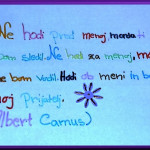 Ne hodi pred menoj morda ti
bom sledil. Ne hodi za menoj, mo
ne bom vodil. Hodi ob meni in b
moj Prijatelj.
lbert Camus)